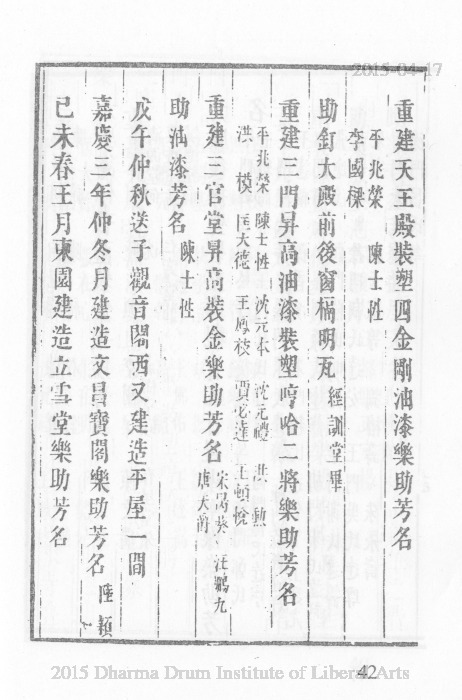 2015-04-17
重建天王殿裝塑四金剛油漆樂助芳名
平兆榮 陳士甡
李國樑
助釘大殿前後窗槅明瓦 經訓堂畢
重建三門昇高油漆裝塑哼哈二將樂助芳名
平兆榮 陳士甡 沈元本 沈元禮 洪勳
洪模 匡大德 王 賈 達 王
重建三官堂昇高裝金樂助芳名 宋 汪鵬九
唐天爵
助油漆芳名 陳士甡
戊午仲秋送子觀音閣西又建造平屋一間
嘉慶三年仲冬月建造文昌寶閣樂助芳名 陸穎
己未春王月東園建造立雪堂樂助芳名
42
2015 Dharma Drum Institute of Liberal Arts